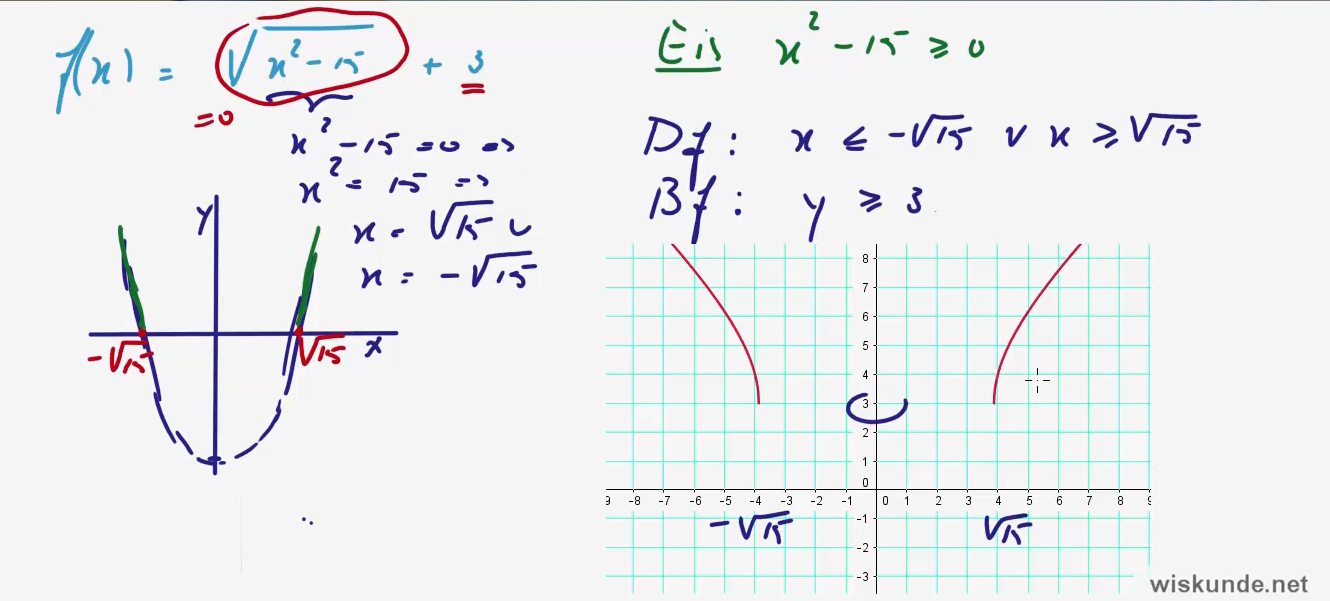 f(x) = √(x² - 15) + 3
= 0
x² - 15 = 0 =>
x² = 15 =>
x = √15 ∨
x = -√15
y
-√15 √15 x
Eis x² - 15 ≥ 0
Df : x ≤ -√15 ∨ x ≥ √15
Bf : y ≥ 3
8
7
6
5
4
3
2
1
0
9 -8 -7 -6 -5 -4 -3 -2 -1 0 1 2 3 4 5 6 7 8 9
-√15 √15
-1
-2
-3
wiskunde.net